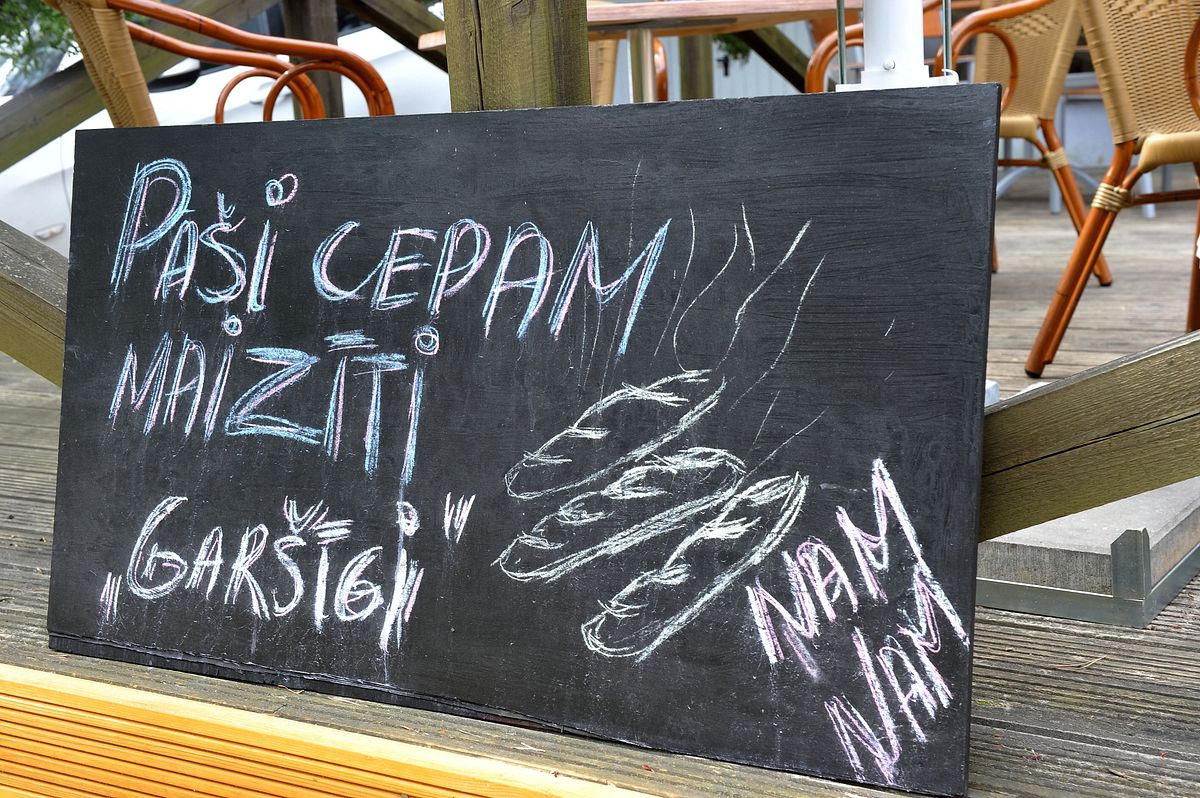 Paši CEPAM
MAiZĪTi
„GARŠĪGi"
NAM
NAM